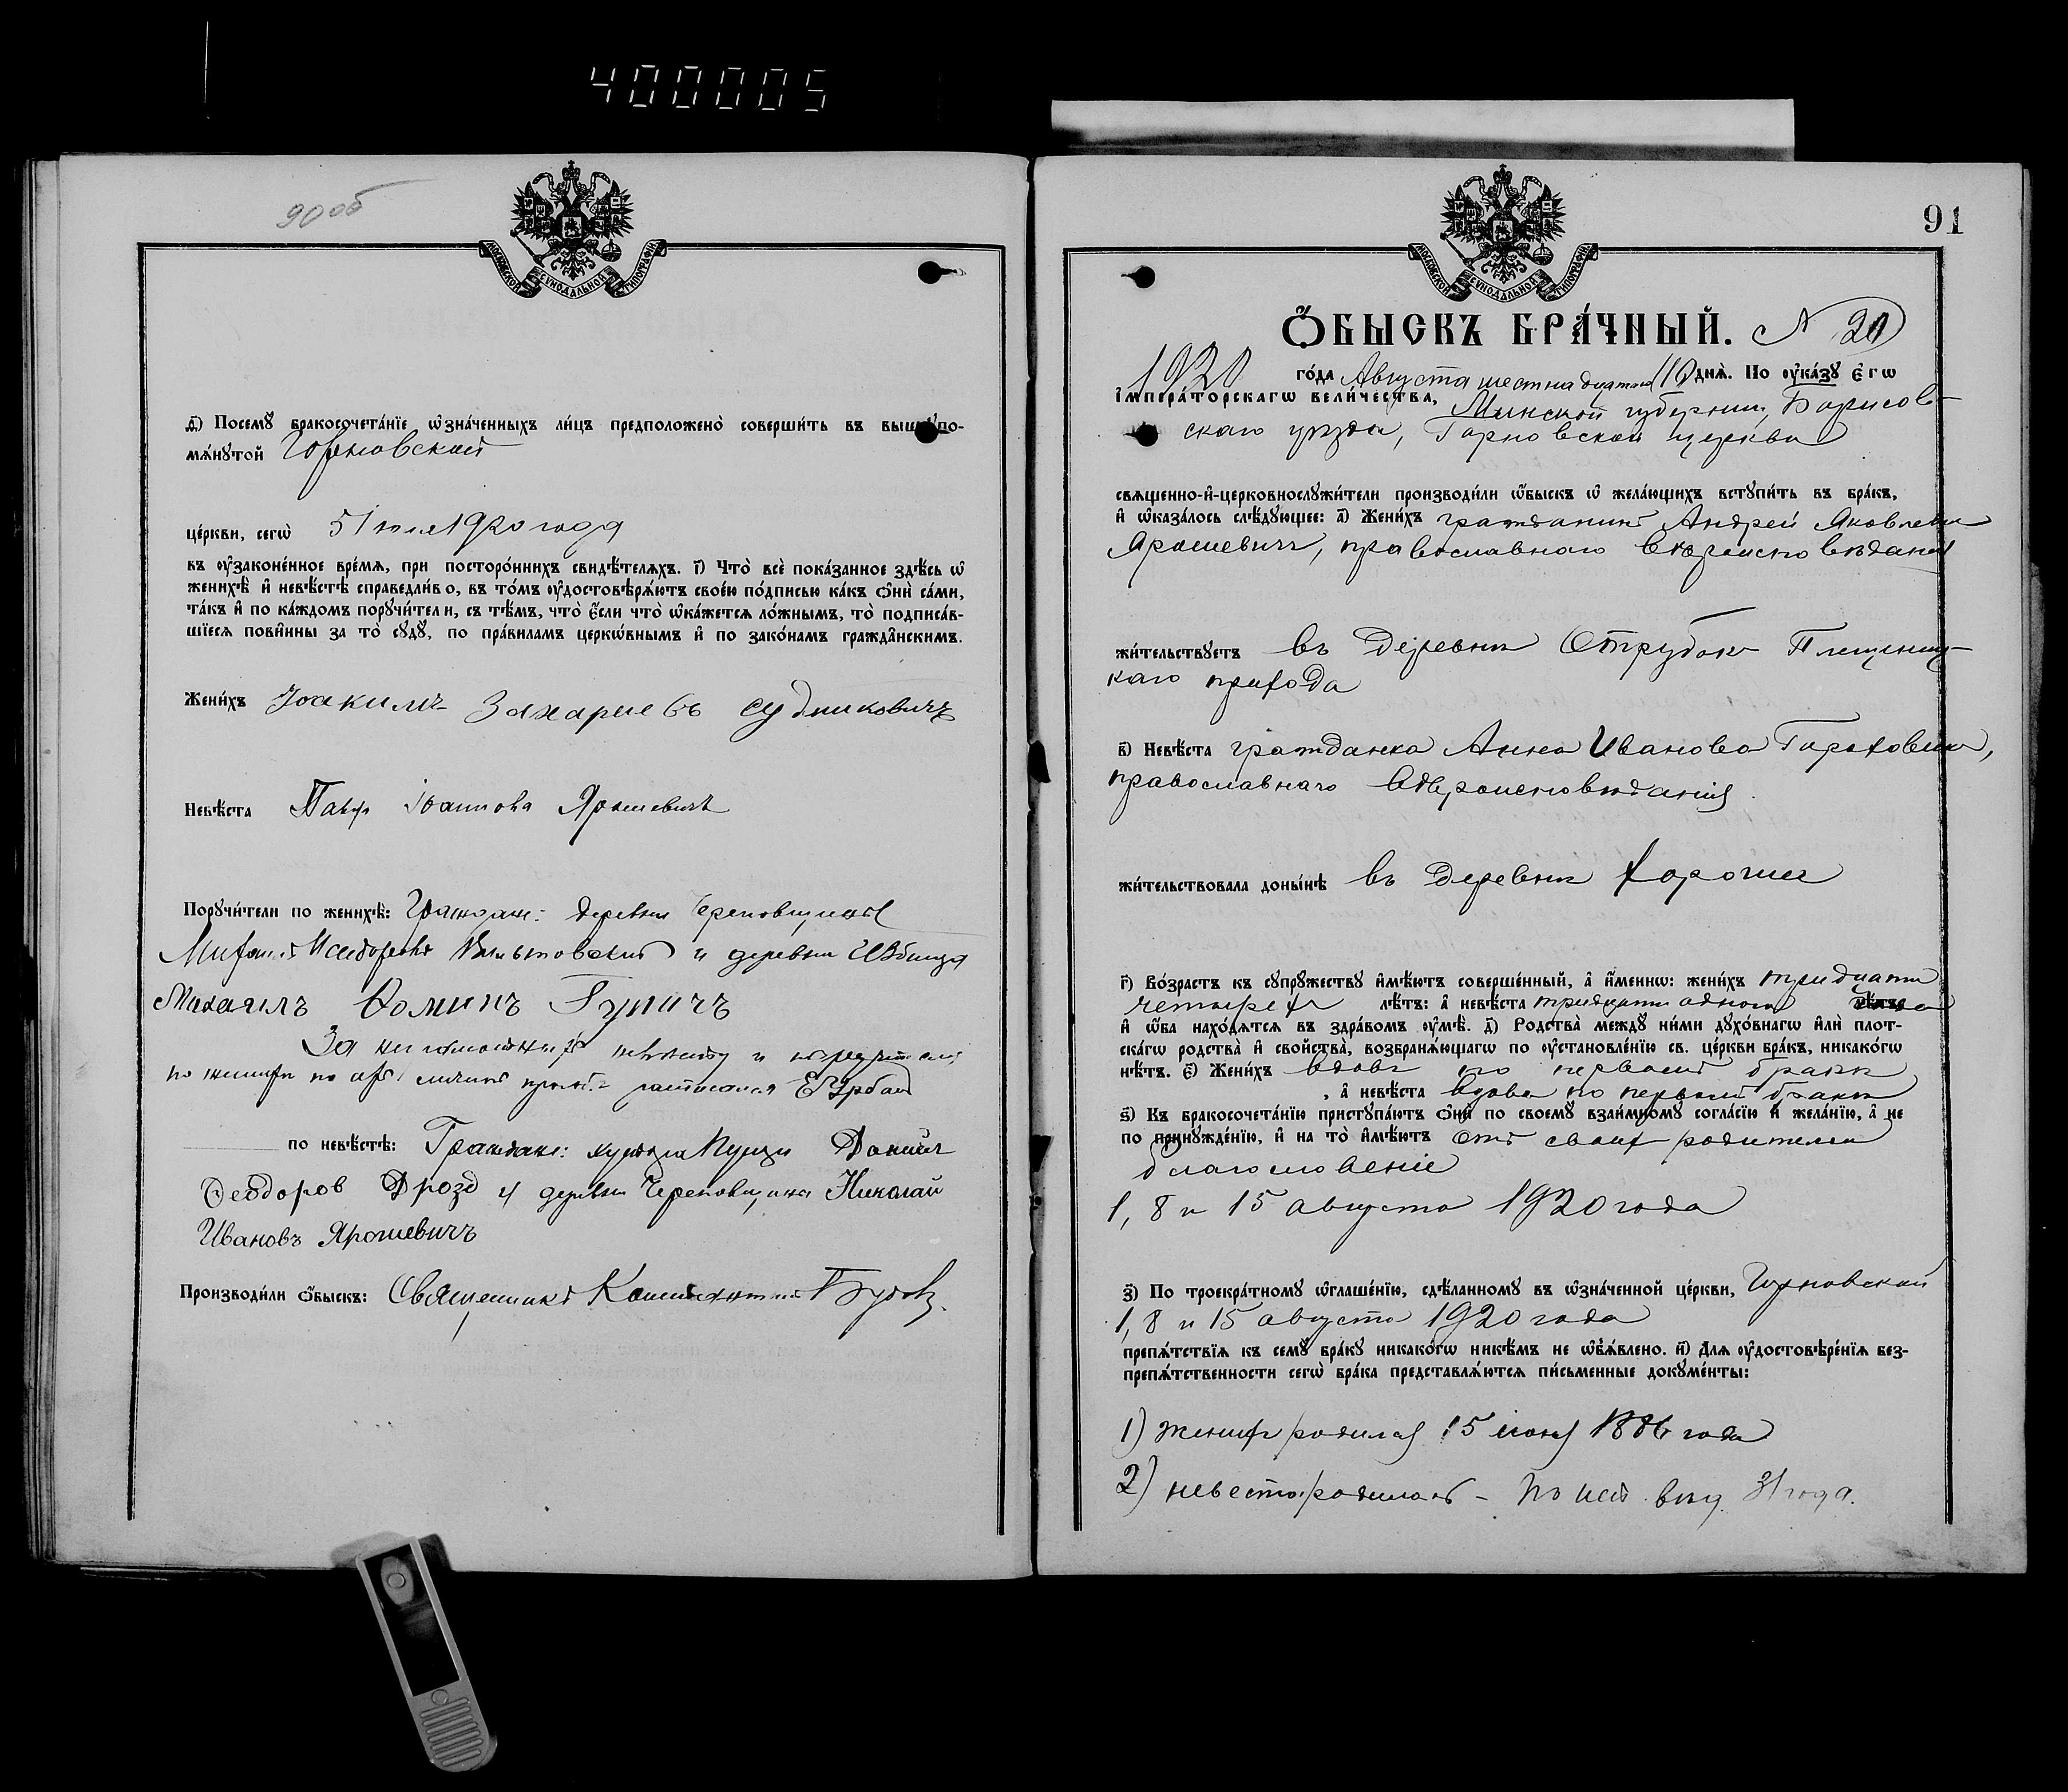 400005
90об
МОСКОВСКОЙ СѴНОДАЛЬНОЙ ТИПОГРАФІИ
д҃) Посемꙋ̀ бракосочета́нїе ѡ҆зна́ченныхъ ли́цъ предположено̀ соверши́ть въ выше
по-
мѧ́нꙋтой Горновской
це́ркви, сегѡ̀ 5 Iюля 1920 года
въ ᲂу҆зако́ненное вре́мѧ, при посторо́ннихъ свидѣ́телѧхъ. і҃) Что̀ всѐ пока́занное здѣ́сь ѡ҆
женихѣ̀ и҆ невѣ́стѣ справедли́во, въ то́мъ ᲂу҆достовѣрѧ́ютъ свое́ю по́дписью ка́къ ѻ҆нѝ са́ми,
та́къ и҆ по ка́ждомъ порꙋчи́тели, съ тѣ́мъ, что̀ є҆́сли что̀ ѡ҆ка́жетсѧ ло́жнымъ, то̀ подписа́в-
шїесѧ пови́нны за то̀ сꙋдꙋ̀, по пра́виламъ церко́внымъ и҆ по зако́намъ гражда́нскимъ.
Жени́хъ Іоакимъ Захаріевъ Судниковичъ
Невѣ́ста Іоаннова Ярошевичъ
Порꙋчи́тели по женихѣ̀: Граждане: деревни Череповщины
Исидоровъ и деревни
Михаилъ Ѳоминъ Гуричъ
За
по по расписался Е Урбан
по невѣ́стѣ: Граждане: Даніил
Ѳеодоров Дрозд и деревни Череповщина Николай
Ивановъ Ярошевичъ
Производи́ли ѻ҆́быскъ: Священникъ Константинъ
91
МОСКОВСКОЙ СѴНОДАЛЬНОЙ ТИПОГРАФІИ
Ѻ҆́БЫСКЪ БРА́ЧНЫЙ. N 20
1920 го́да Августа шестнадцатаго 16 днѧ̀. По ᲂу҆ка́зꙋ Є҆гѡ̀
І҆мпера́торскагѡ вели́чества, Минской губерніи, Борисов-
скаго уѣзда, Горновской церкви
свѧще́нно-и҆-церковнослꙋжи́тели производи́ли ѡ҆́быскъ ѡ҆ жела́ющихъ встꙋпи́ть въ бра́къ,
и҆ ѡ҆каза́лось слѣ́дꙋющее: а҃) Жени́хъ гражданинъ Андрей Яковлевъ
Ярошевичъ, православнаго вѣроисповѣданія
жи́тельствꙋетъ въ деревни Отрубокъ Плещениц-
каго прихода
в҃) Невѣ́ста гражданка Анна Иванова Гороховикъ,
православнаго вѣроисповѣданія
жи́тельствовала доны́нѣ въ деревни
г҃) Во́зрастъ къ сꙋпрꙋ́жествꙋ и҆мѣ́ютъ соверше́нный, а҆ и҆́меннѡ: жени́хъ тридцати
четырехъ лѣ́тъ: а҆ невѣ́ста тридцати одного
и҆ ѡ҆́ба нахо́дѧтсѧ въ здра́вомъ ᲂу҆мѣ̀. д҃) Родства̀ междꙋ̀ ни́ми дꙋхо́внагѡ и҆лѝ плот-
ска́гѡ родства̀ и҆ сво́йства̀, возбранѧ́ющагѡ по ᲂу҆становле́нїю св. це́ркви бра́къ, никако́гѡ
нѣ́тъ. є҃) Жени́хъ вдовъ по первомъ бракѣ
, а҆ невѣ́ста вдова по первомъ бракѣ
ѕ҃) Къ бракосочета́нїю пристꙋпа́ютъ ѻ҆нѝ по своемꙋ̀ взаи́мномꙋ согла́сїю и҆ жела́нїю, а҆ не
по принꙋжде́нїю, и҆ на то̀ и҆мѣ́ютъ отъ своихъ родителей
благословеніе
1, 8 и 15 августа 1920 года
з҃) По троекра́тномꙋ ѡ҆глаше́нїю, сдѣ́ланномꙋ въ ѡ҆зна́ченной це́ркви, Горновской
1, 8 и 15 августа 1920 года
препѧ́тствїѧ къ семꙋ̀ бра́кꙋ никако́гѡ никѣ́мъ не ѡ҆б̾ѧ́влено. и҃) Длѧ ᲂу҆достовѣре́нїѧ без-
препѧ́тственности сегѡ̀ бра́ка представлѧ́ютсѧ пи́сьменные докꙋме́нты:
1) женихъ родился 15 іюня 1886 года
2) невеста родилась - 31 года.